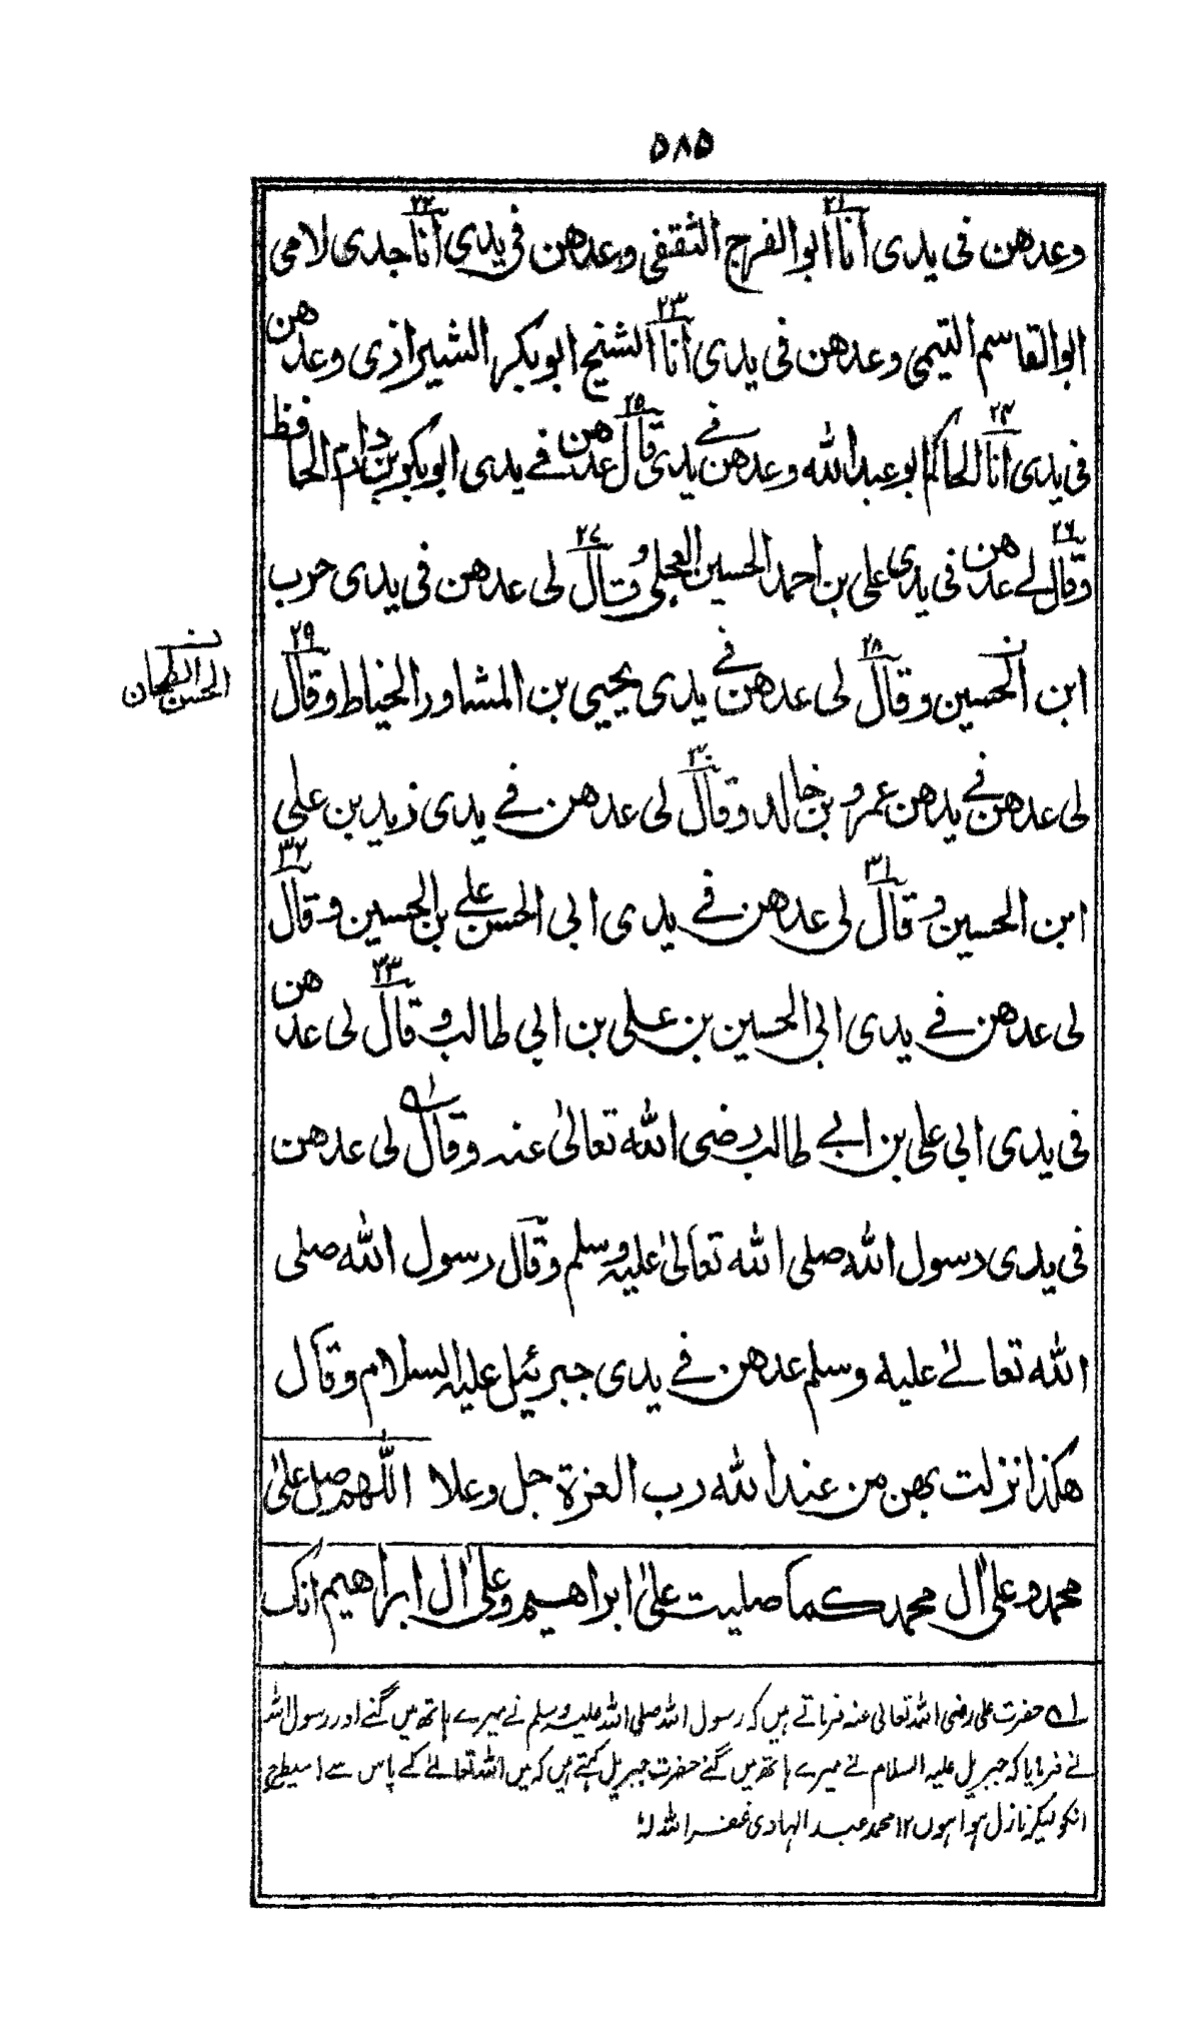 ٥٨٥
وعدهن فی یدی انا ٢١ ابو الفرج الثقفی وعدهن فی یدی انا ٢٢ جدی لامی
ابو القاسم التیمی وعدهن فی یدی انا ٢٣ الشیخ ابو بکر الشیرازی وعدهن
فی یدی انا ٢٤ الحاکم ابو عبد الله وعدهن فے یدی قال ٢٥ عدهن فے یدی ابو بکر بن دارم الحافظ
وقال ٢٦ لے عدهن فی یدی علی بن احمد الحسین العجلی وقال ٢٧ لی عدهن فی یدی حرب
ابن الحسین وقال ٢٨ لی عدهن فے یدی یحیی بن المشاور الخیاط وقال ٢٩
الحسن الطحان
لی عدهن فے یدهن عمرو بن خالد وقال ٣٠ لی عدهن فے یدی زید بن علی
ابن الحسین وقال ٣١ لی عدهن فے یدی ابی الحسن علے بن الحسین وقال ٣٢
لی عدهن فے یدی ابی الحسین بن علی بن ابی طالب وقال ٣٣ لی عدهن
فی یدی ابی علی بن ابے طالب رضی الله تعالیٰ عنه وقال لی عدهن
فی یدی رسول الله صلی الله تعالیٰ علیه وسلم وقال رسول الله صلی
الله تعالےٰ علیه وسلم عدهن فے یدی جبرئیل علیه السلام وقال
هکذا نزلت بهن من عند الله رب العزة جل وعلا اللهم صل علیٰ
محمد وعلیٰ ال محمد کما صلیت علیٰ ابراهیم وعلیٰ ال ابراهیم انک
لے حضرت علی رضی اللہ تعالی عنہ فرماتے ہیں کہ رسول اللہ صلی اللہ علیہ وسلم نے میرے ہاتھ میں گنے اور رسول اللہ
نے فرمایا کہ جبریل علیہ السلام نے میرے ہاتھ میں گنے حضرت جبریل کہتے ہیں کہ میں اللہ تعالےٰ کے پاس سے اسیطرح
انکو لیکر نازل ہوا ہوں ۱۲ محمد عبد الہادی غفر اللہ لہٗ